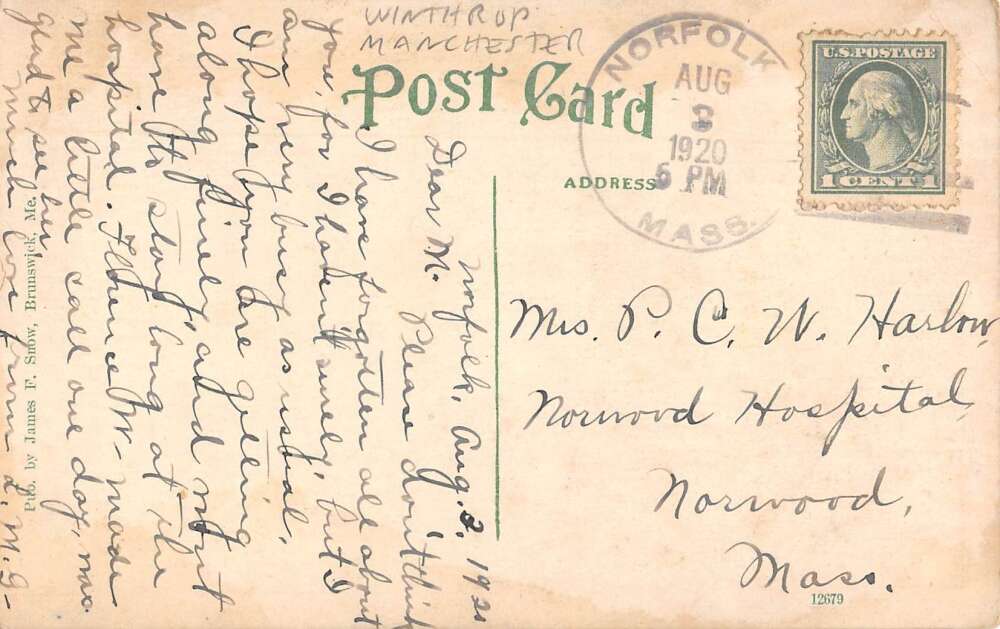 WINTHROP
MANCHESTER
Post Card
NORFOLK
AUG
3
1920
6 PM
MASS.
U.S. POSTAGE
1 CENT 1
ADDRESS
Mrs. P. C. W. Harlow,
Norwood Hospital,
Norwood,
Mass.
12679
Norfolk, Aug. 3, 1920
Dear M. Please don't think
I have forgotten all about
you, for I haven't surely, but I
am very busy as usual,
I hope you are getting
along finely and wont
have to stay long at the
hospital. Florence W- made
me a little call one day, was
glad to see her,
Much love from L. M. G-
Pub. by James F. Snow, Brunswick, Me.